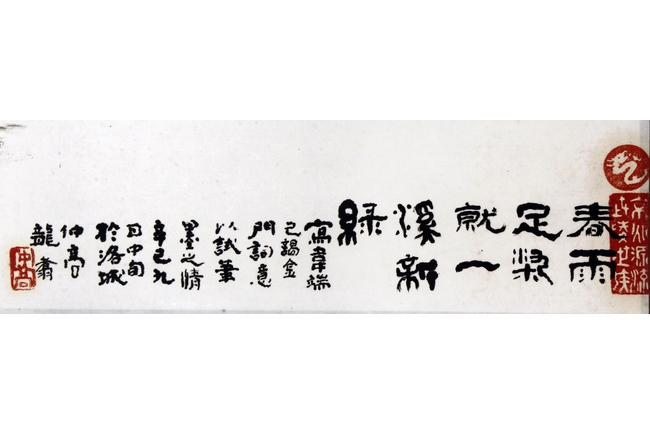 春雨
足染
就一
溪新
綠
寫韋端
己謁金
門詞意
以試筆
墨之情
辛巳九
月中旬
於洛城
仲高
龍翁